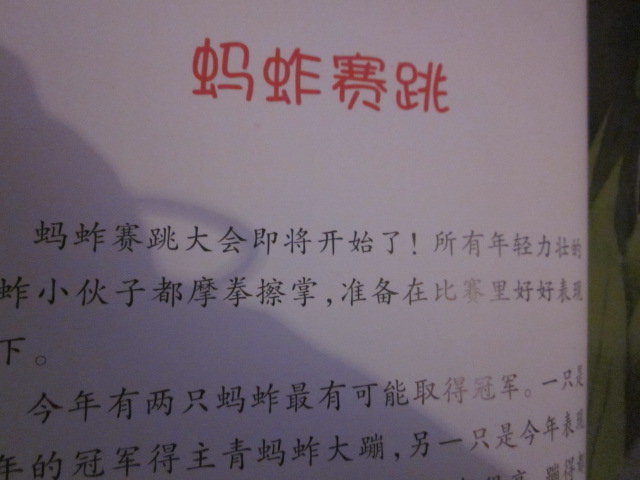 蚂蚱赛跳
蚂蚱赛跳大会即将开始了！所有年轻力壮的
蚱小伙子都摩拳擦掌，准备在比赛里好好表现
下。
今年有两只蚂蚱最有可能取得冠军。一只是
年的冠军得主青蚂蚱大蹦，另一只是今年表现